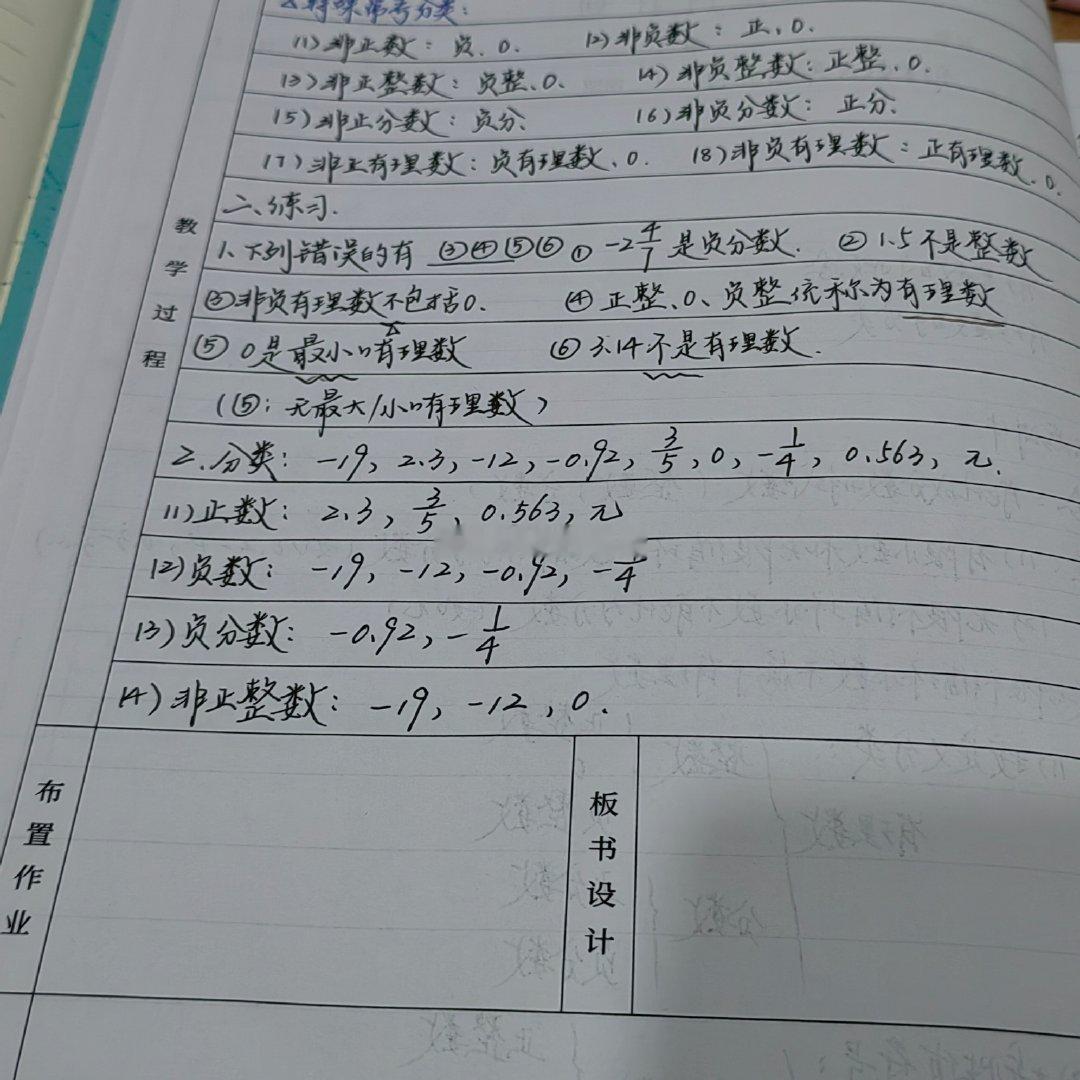 2.特殊符号分类:
(1)非正数: 负、0. (2)非负数: 正、0.
(3)非正整数: 负整、0. (4)非负整数: 正整、0.
(5)非正分数: 负分. (6)非负分数: 正分.
(7)非正有理数: 负有理数、0. (8)非负有理数: 正有理数、0.
二、练习.
1、下列错误的有 ③④⑤⑥ ① -2 4/7 是负分数. ② 1.5不是整数
③非负有理数不包括0. ④ 正整、0、负整统称为有理数
⑤ 0是最小的有理数 ⑥ 3.14不是有理数.
(⑤: 无最大/小的有理数)
2.分类: -19, 2.3, -12, -0.92, 3/5, 0, -1/4, 0.563, π.
(1)正数: 2.3, 3/5, 0.563, π
(2)负数: -19, -12, -0.92, -1/4
(3)负分数: -0.92, -1/4
(4)非正整数: -19, -12, 0.
教学过程
布置作业
板书设计